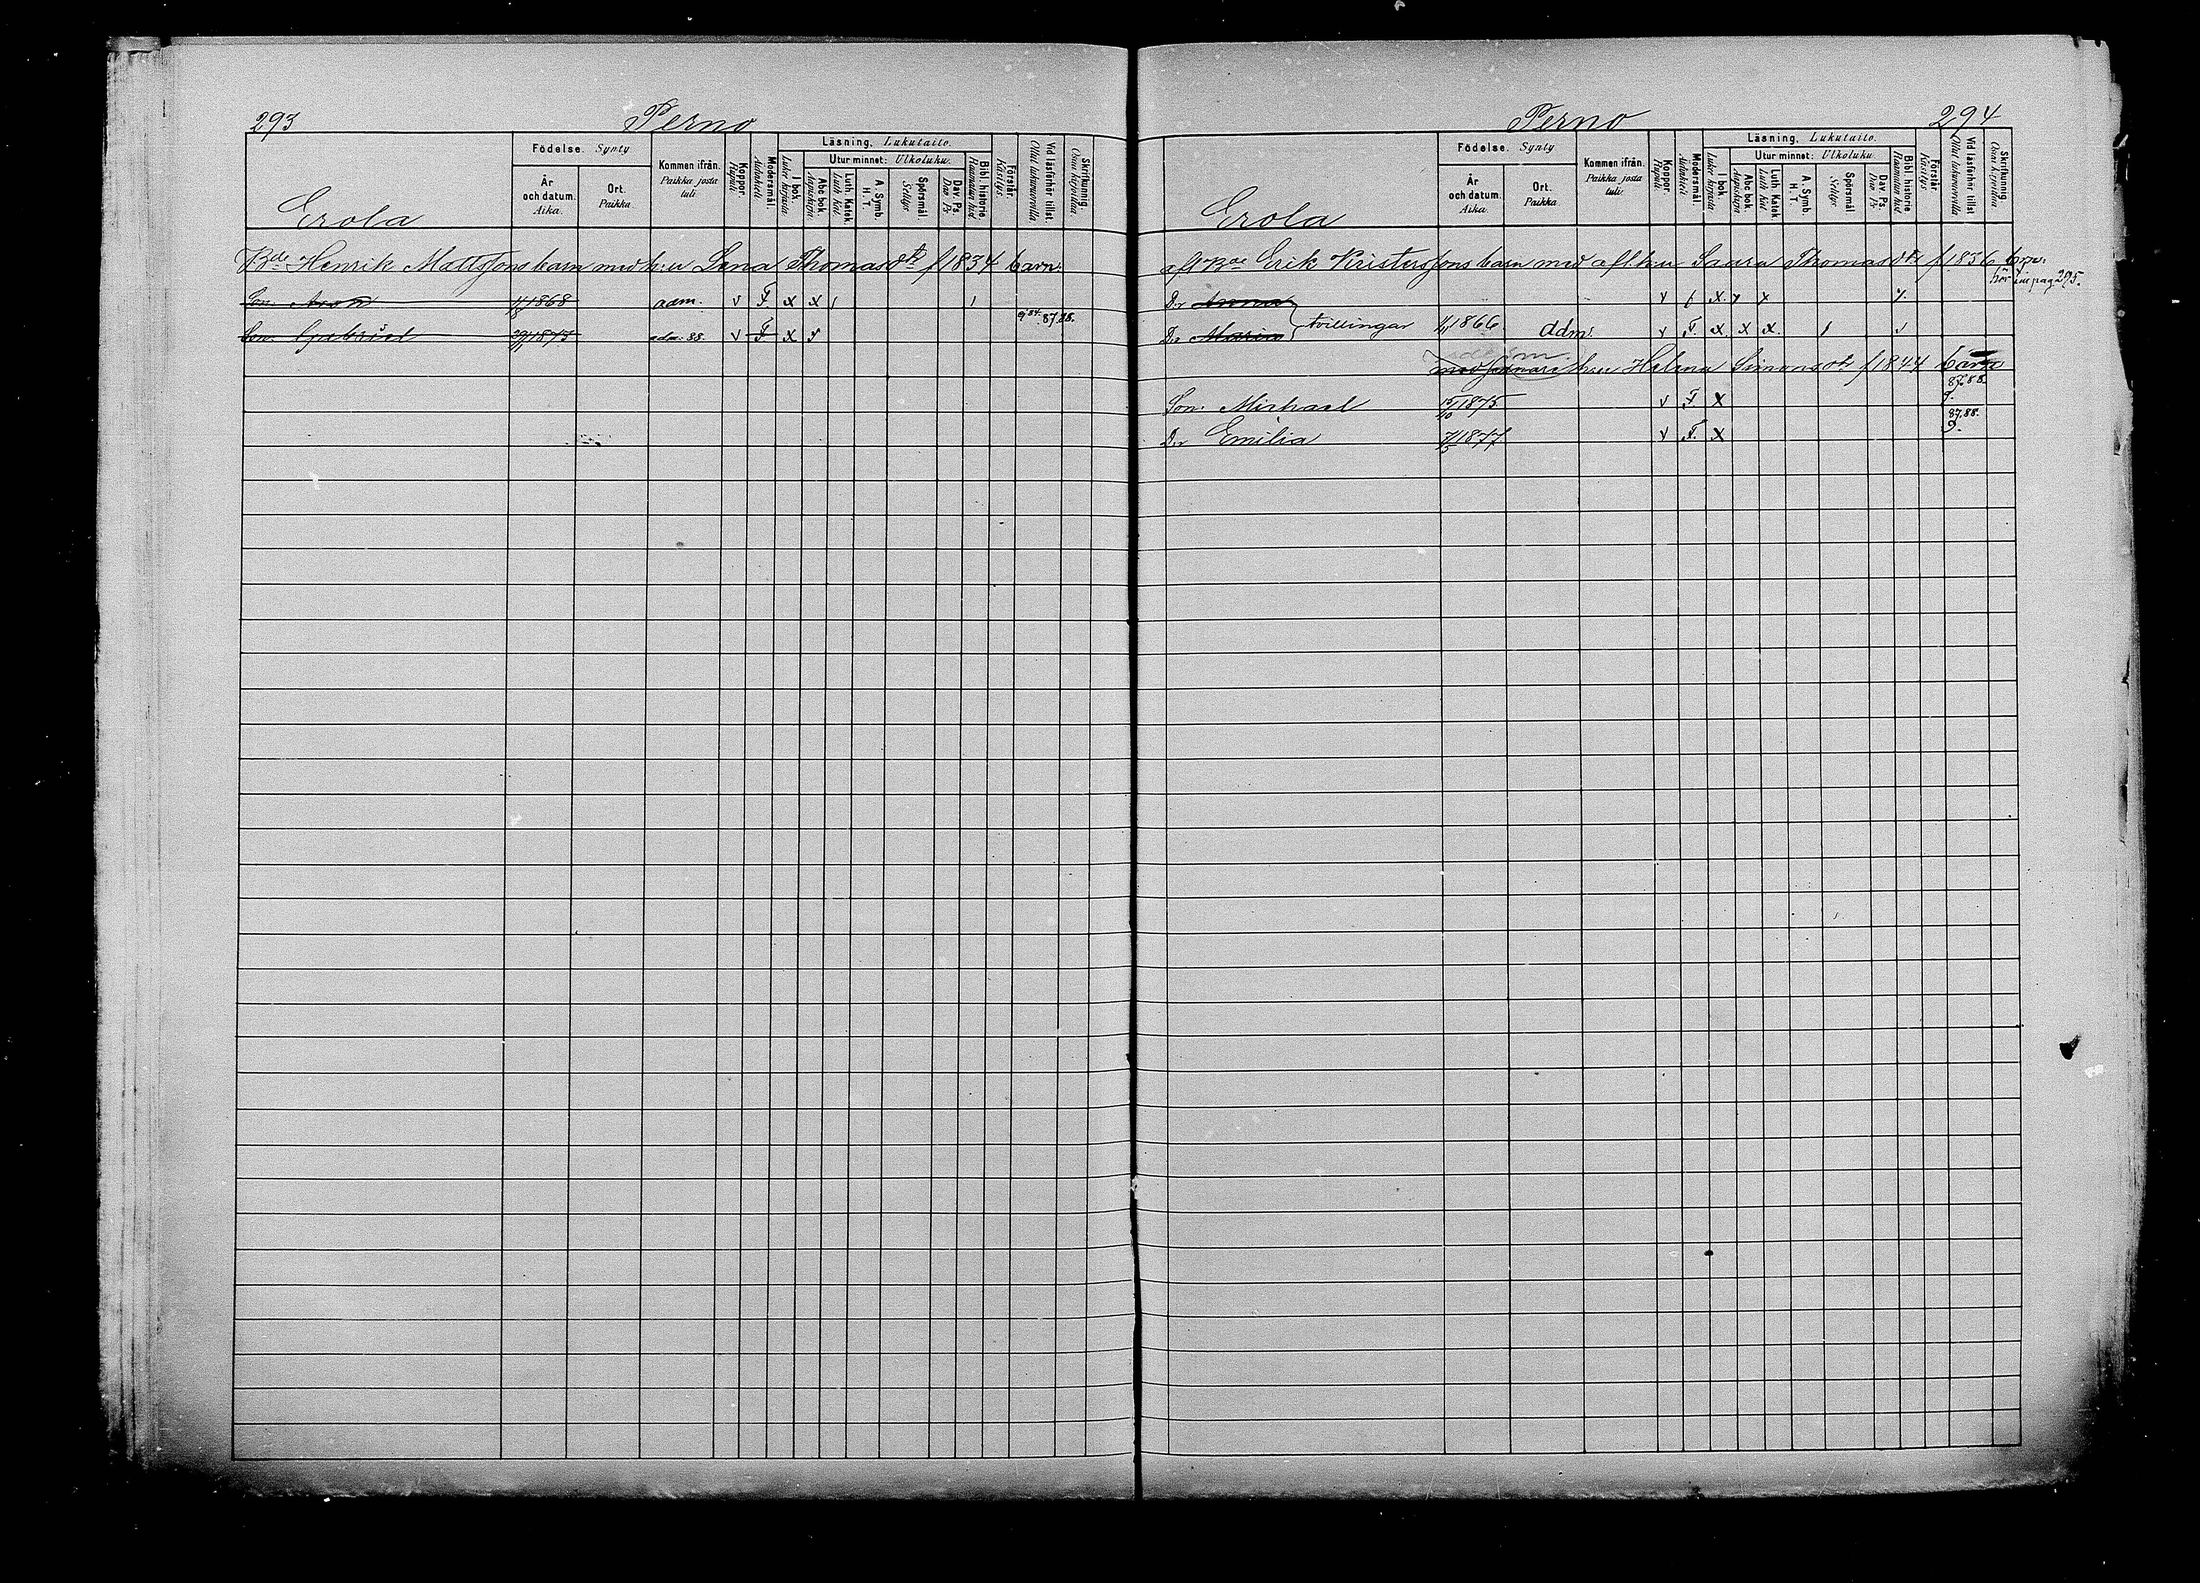 293
Perno
Erola
Födelse. Synty
År och datum. Aika.
Ort. Paikka.
Kommen ifrån. Paikka josta tuli.
Koppor. Rupuli
Modersmål. Äidinkieli
Läsning. Lukutaito.
I bok. Lukee kirjasta
Utur minnet: Ulkoluku.
Abc bok. Aapiskirja
Luth. Katek. Luth. Kat.
A. Symb. H. T.
Spörsmål Selitys
Dav. Ps. Dav. Ps
Bibl. historie Raamatun hist.
Förstår. Käsitys.
Vid läsförhör tillst. Ollut lukuvuorolla
Skrifkunning.
Bde Henrik Mattssons barn med h:u Lena Thomasdtr f 1834 barn:
Son. Aron 1868 adm. v F x x 1 1
Son. Gabriel 1873 adm. 88. v F x 87.88.
294
Perno
Erola
Födelse. Synty
År och datum. Aika.
Ort. Paikka
Kommen ifrån. Paikka josta tuli.
Koppor. Rupuli
Modersmål. Äidinkieli
Läsning. Lukutaito.
I bok. Lukee kirjasta
Utur minnet: Ulkoluku.
Abc bok.
Luth. Katek Luth. Kat
A. Symb. H. T.
Spörsmål Selitys
Dav. Ps. Dav. Ps
Bibl. historie Raamatun hist
Förstår Käsitys
Vid läsförhör tillst Ollut lukuvuorolla
Skrifkunning
afl. Bde Erik Kristerssons barn med afl. h:u Saara Thomasdtr f 1836 barn:
pag 295.
D:r Anna v f x x
D:r Maria tvillingar 1866 adm. v F. x x x
h:u Helena Simonsdtr f 1844 barn
Son. Michael 1875 v F x 87.88.
D:r Emilia 1877 v F. x 87.88.